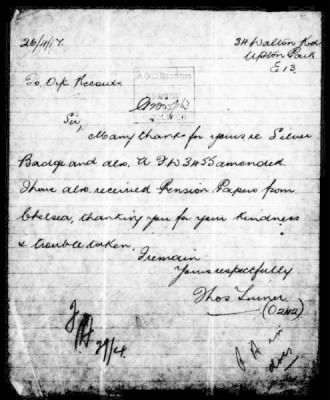 26/4/17.
34 Walton Road
Upton Park
E 13.
To, O i/c Records
A.O.C. RECORDS
Sir,
Many thanks for yours re Silver
Badge and also. A F B 3455 amended
I have also received Pension Papers from
Chelsea, thanking you for your kindness
& trouble taken.
I remain
Yours respectfully
Thos Turner
(O2112)
P A in